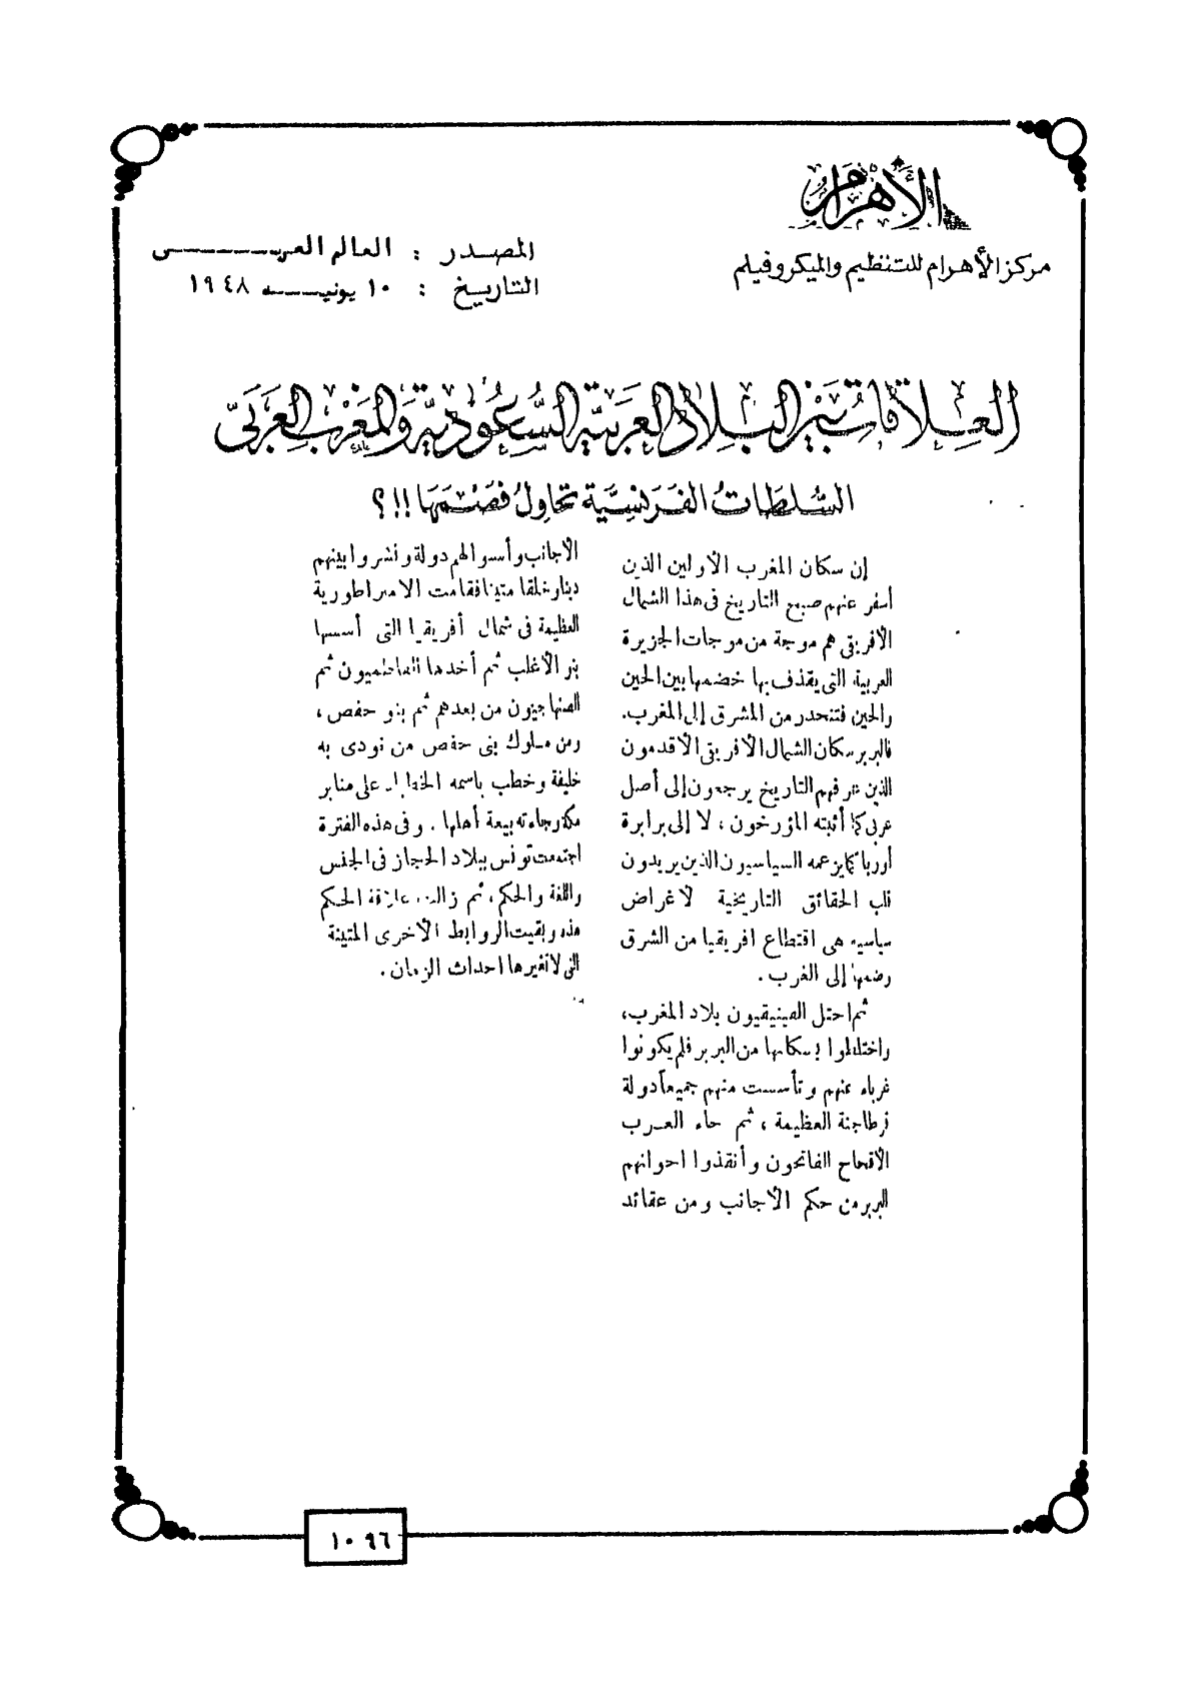 الأهرام
مركز الأهرام للتنظيم والميكروفيلم
المصدر : العالم العربى
التاريخ : ١٠ يونيه ١٩٤٨
العلاقات بين البلاد العربية السعودية والمغرب العربى
السلطات الفرنسية تحاول فصمها !!؟
إن سكان المغرب الأولين الذين
أسفر عنهم صبح التاريخ فى هذا الشمال
الأفريقى هم موجة من موجات الجزيرة
العربية التى يقذف بها خضمها بين الحين
والحين فتنحدر من المشرق إلى المغرب.
فالبربر سكان الشمال الأفريقى الأقدمون
الذين عرفهم التاريخ يرجعون إلى أصل
عربى كما أثبته المؤرخون ، لا إلى برابرة
أوربا كما يزعمه السياسيون الذين يريدون
قلب الحقائق التاريخية لأغراض
سياسيه هى اقتطاع افريقيا من الشرق
وضمها إلى الغرب .
ثم احتل الفينيقيون بلاد المغرب،
واختلطوا بسكانها من البربر فلم يكونوا
غرباء عنهم وتأسست منهم جميعاً دولة
قرطاجنة العظيمة ، ثم جاء العرب
الأقحاح الفاتحون وأنقذوا اخوانهم
البربر من حكم الأجانب ومن عقائد
الأجانب وأسسوا لهم دولة ونشروا بينهم
دينا وخلقا متينا فقامت الامبراطورية
العظيمة فى شمال أفريقيا التى أسسها
بنو الأغلب ثم أخذها الفاطميون ثم
الصنهاجيون من بعدهم ثم بنو حفص ،
ومن ملوك بنى حفص من نودى به
خليفة وخطب باسمه الخطباء على منابر
مكة وجاءته بيعة أهلها . وفى هذه الفترة
اجتمعت تونس ببلاد الحجاز فى الجنس
واللغة والحكم ، ثم زالت علاقة الحكم
هذه وبقيت الروابط الأخرى المتينة
التى لا تغيرها احداث الزمان .
١٠٩٦